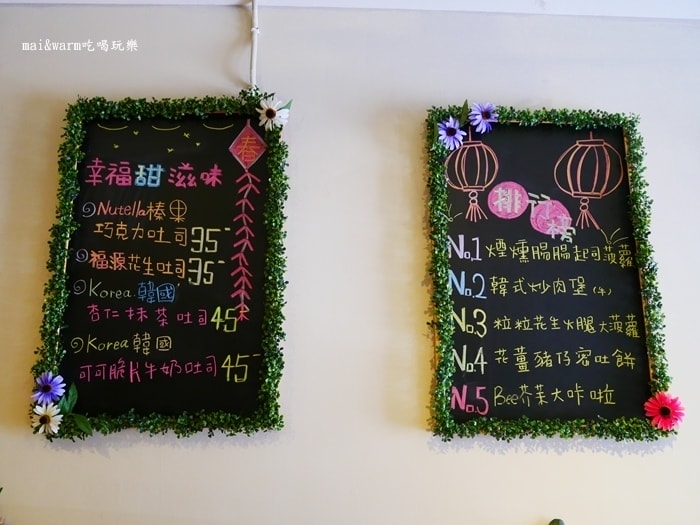 mai&warm吃喝玩樂
春
幸福甜滋味
Nutella榛果
巧克力吐司 35-
福源花生吐司 35-
Korea 韓國
杏仁抹茶吐司 45-
Korea 韓國
可可脆片牛奶吐司 45-
排行榜
No.1 煙燻腸腸起司菠蘿
No.2 韓式炒肉堡(牛)
No.3 粒粒花生火腿大菠蘿
No.4 花薑豬仔窩吐餅
No.5 Bee芥茉大咔啦